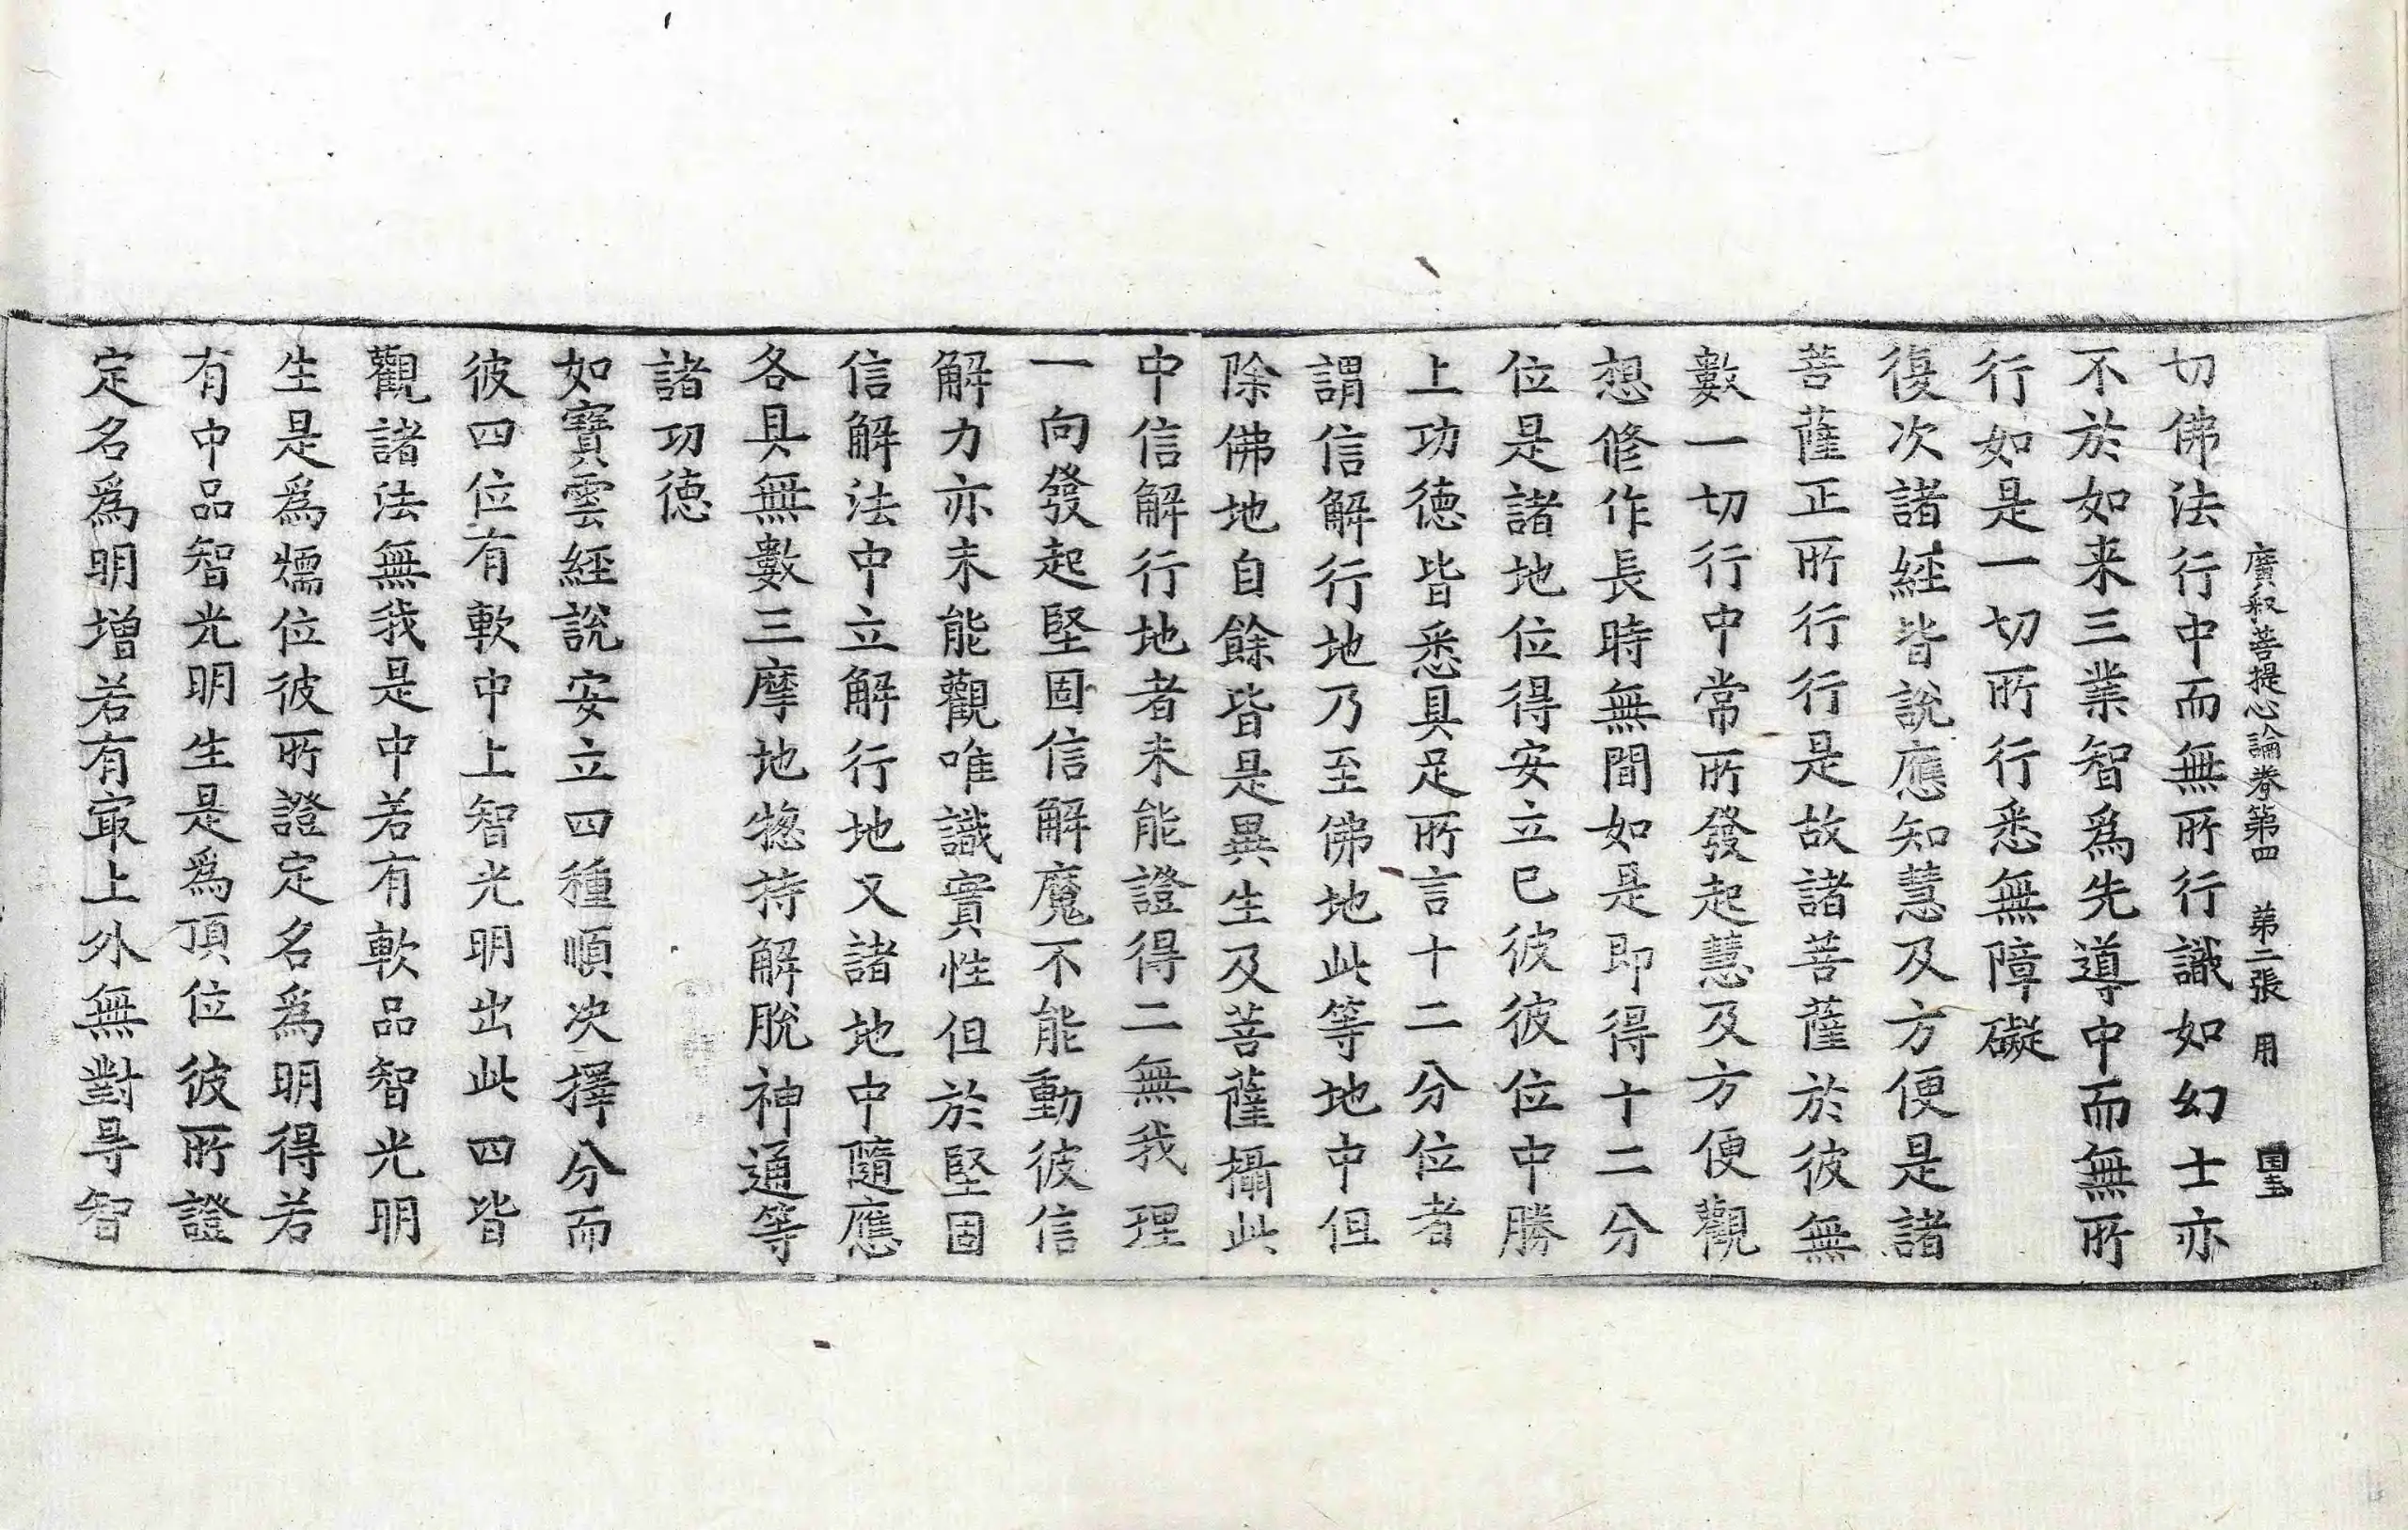 廣釋菩提心論卷第四　第二張　用　国玉
切佛法行中而無所行識如幻士亦
不於如来三業智爲先導中而無所
行如是一切所行悉無障礙
復次諸經皆說應知慧及方便是諸
菩薩正所行行是故諸菩薩於彼無
數一切行中常所發起慧及方便觀
想修作長時無間如是即得十二分
位是諸地位得安立已彼彼位中勝
上功德皆悉具足所言十二分位者
謂信解行地乃至佛地此等地中但
除佛地自餘皆是異生及菩薩攝此
中信解行地者未能證得二無我理
一向發起堅固信解魔不能動彼信
解力亦未能觀唯識實性但於堅固
信解法中立解行地又諸地中隨應
各具無數三摩地揔持解脫神通等
諸功德
如寶雲經說安立四種順次擇分而
彼四位有軟中上智光明出此四皆
觀諸法無我是中若有軟品智光明
生是爲㬉位彼所證定名爲明得若
有中品智光明生是爲頂位彼所證
定名爲明增若有㝡上外無對㝵智